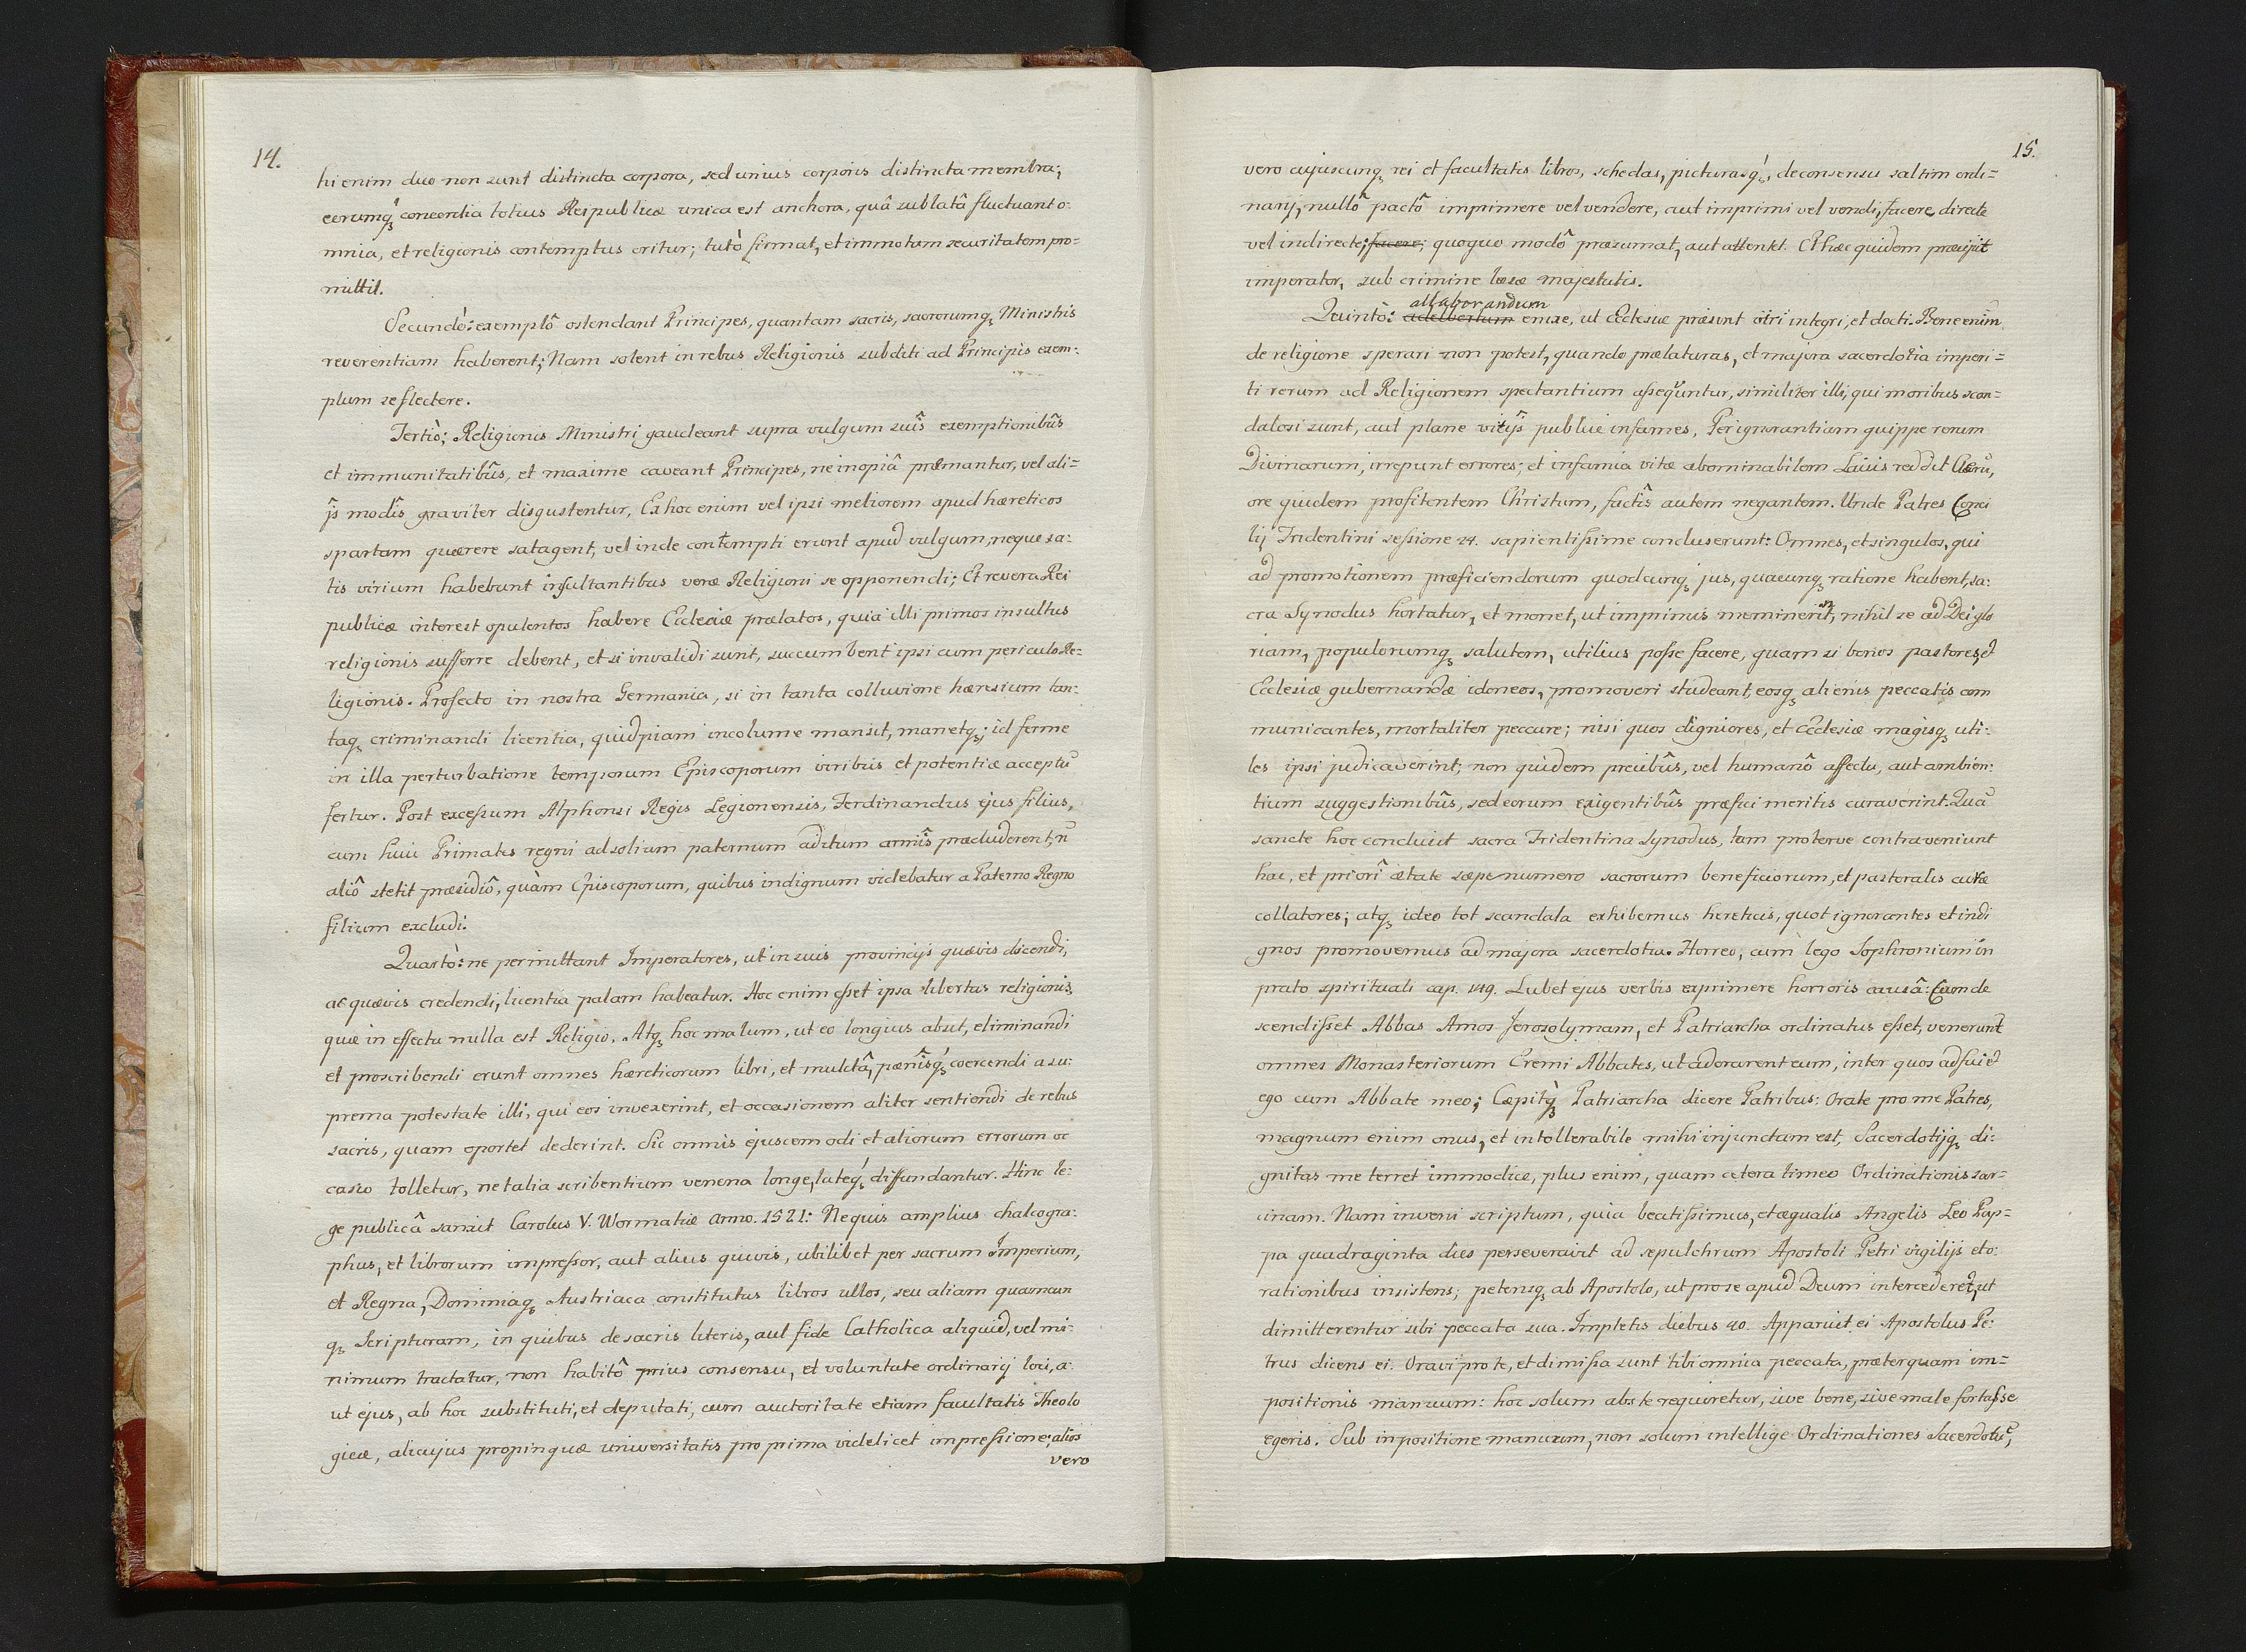 14.
hi enim duo non sunt distincta corpora, sed unius corporis distincta membra;
eorumq́ concordia totius Reipublicæ unica est anchora, quâ sublatâ fluctuant o-
mnia, et religionis contemptus oritur; tutò firmat, et immotam securitatem pro-
mittit.
Secundò: exemplô ostendant Principes, quantam sacris, sacrorumq̨ Ministris
reverentiam haberent; Nam solent in rebus Religionis subditi ad Principis exem-
plum se flectere.
Tertiò; Religionis Ministri gaudeant supra vulgum suîs exemptionibûs
et immunitatibûs, et maxime caveant Principes, ne inopiâ præmantur, vel ali-
ijs modîs graviter disgustentur, Ex hoc enim vel ipsi meliorem apud hæreticos
spartam quærere satagent, vel inde contempti erunt apud vulgum, neque sa-
tis virium habebunt insultantibus veræ Religioni se opponendi; Et revera Rei
publicæ interest opulentos habere Ecclesiæ prælatos, quia illi primos insultus
religionis sufferre debent, et si invalidi sunt, succumbent ipsi cum periculo Re-
ligionis. Profecto in nostra Germania, si in tanta colluvione hæresium tan-
taq̨ criminandi licentia, quidpiam incolume mansit, manetq̨; id ferme
in illa perturbatione temporum Episcoporum viribus et potentiæ acceptū
fertur. Post excessum Alphonsi Regis Legionensis, Ferdinandus ejus filius,
cum huic Primates regni ad solium paternum aditum armîs præcluderent, ñ
aliô stetit præsidiô, quàm Episcoporum, quibus indignum videbatur a Paterno Regno
filium excludi.
Quartò: ne permittant Imperatores, ut in suis provincijs quævis dicendi,
ac quævis credendi, licentia palam habeatur. Hoc enim esset ipsa libertas religionis,
quæ in effectu nulla est Religio. Atq̨ hoc malum, ut eo longius absit, eliminandi
et proscribendi erunt omnes hæreticorum libri, et mulctâ, pænîsq́ coercendi a su-
prema potestate illi, qui eos invexerint, et occasionem aliter sentiendi de rebus
sacris, quam oportet dederint. Sic omnis ejuscemodi et aliorum errorum oc
casio tolletur, ne talia scribentium venena longe, lateq́ diffundantur. Hinc le-
ge publicâ sanxit Carolus V. Wormatiæ anno. 1521: Nequis amplius chalcogra-
phus, et librorum impressor, aut alius quivis, ubilibet per sacrum Imperium,
et Regna, Dominiaq̨ Austriaca constitutus libros ullos, seu aliam quamcun
q̨ Scripturam, in quibus de sacris literis, aut fide Catholica aliquid, vel mi-
nimum tractatur, non habitô prius consensu, et voluntate ordinarij loci, a-
ut ejus, ab hoc substituti, et deputati, cum auctoritate etiam facultatis Theolo
gicæ, alicujus propinquæ universitatis pro prima videlicet impressione; alios
vero
15.
vero cujuscunq̨ rei et facultatis libros, schedas, picturasq́, de consensu saltim ordi-
narij, nullô pactô imprimere vel vendere, aut imprimi vel vendi, facere, directe
vel indirecte; facere; quoquo modô præsumat, aut attentet. Et hæc quidem præcipit
imperator, sub crimine læsæ majestatis.
allaborandum
Quintò: adelbertum enixe, ut Ecclesiæ præsint viri integri, et docti. Bene enim
de religione sperari non potest, quando prælaturas, et majora sacerdotia imperi-
ti rerum ad Religionem spectantium assequntur, similiter illi, qui moribus scan-
dalosi sunt, aut plane vitijs publice infames. Per ignorantiam quippe rerum
Divinarum, irrepunt errores; et infamia vitæ abominabilem Laicis reddit Clerū,
ore quidem profitentem Christum, factîs autem negantem. Unde Patres Conci
lij Tridentini sessione 24. sapientissime concluserunt: Omnes, et singulos, qui
ad promotionem præficiendorum quodcunq̨ jus, quacunq̨ ratione habent, sa-
cra Synodus hortatur, et monet, ut imprimis meminerint, nihil se ad Dei glo
riam, populorumq̨ salutem, utilius posse facere, quam si bonos pastores, et
Ecclesiæ gubernandæ idoneos, promoveri studeant, eosq̨ alienis peccatis com
municantes, mortaliter peccare; nisi quos digniores, et Ecclesiæ magisq̨ uti-
les ipsi judicaverint; non quidem precibûs, vel humanô affectu, aut ambien-
tium suggestionibûs, sed eorum exigentibûs præfici meritis curaverint. Quā
sancte hoc conclusit sacra Tridentina Synodus, tam proterve contraveniunt
hac, et priorî ætate sæpenumero sacrorum beneficiorum, et pastoralis curæ
collatores; atq̨ ideo tot scandala exhibemus hereticis, quot ignorantes et indi
gnos promovemus ad majora sacerdotia. Horreo, cum lego Sophronium in
prato spirituali cap. 149. Lubet ejus verbis exprimere horroris causâ: Cum de
scendisset Abbas Amos Jerosolymam, et Patriarcha ordinatus esset, venerunt
omnes Monasteriorum Eremi Abbates, ut adorarent eum, inter quos adfui et
ego cum Abbate meo; Cæpitq̨̀ Patriarcha dicere Patribus: Orate pro me Patres,
magnum enim onus, et intollerabile mihi injunctam est, Sacerdotijq̨ di-
gnitas me terret immodice, plus enim, quam cetera timeo Ordinationis sar-
cinam. Nam inveni scriptum, quia beatissimus, et æqualis Angelis Leo Pap-
pa quadraginta dies perseveravit ad sepulchrum Apostoli Petri vigilijs et o-
rationibus insistens; petensq̨ ab Apostolo, ut pro se apud Deum intercederet, ut
dimitterentur sibi peccata sua. Impletis diebus 40. Apparuit ei Apostolus Pe-
trus dicens ei. Oravi pro te, et dimissa sunt tibi omnia peccata, præterquam im-
positionis manuum: hoc solum abs te requiretur, sive bene, sive male fortasse
egeris. Sub inpositione manuum, non solum intellige Ordinationes Sacerdotū,